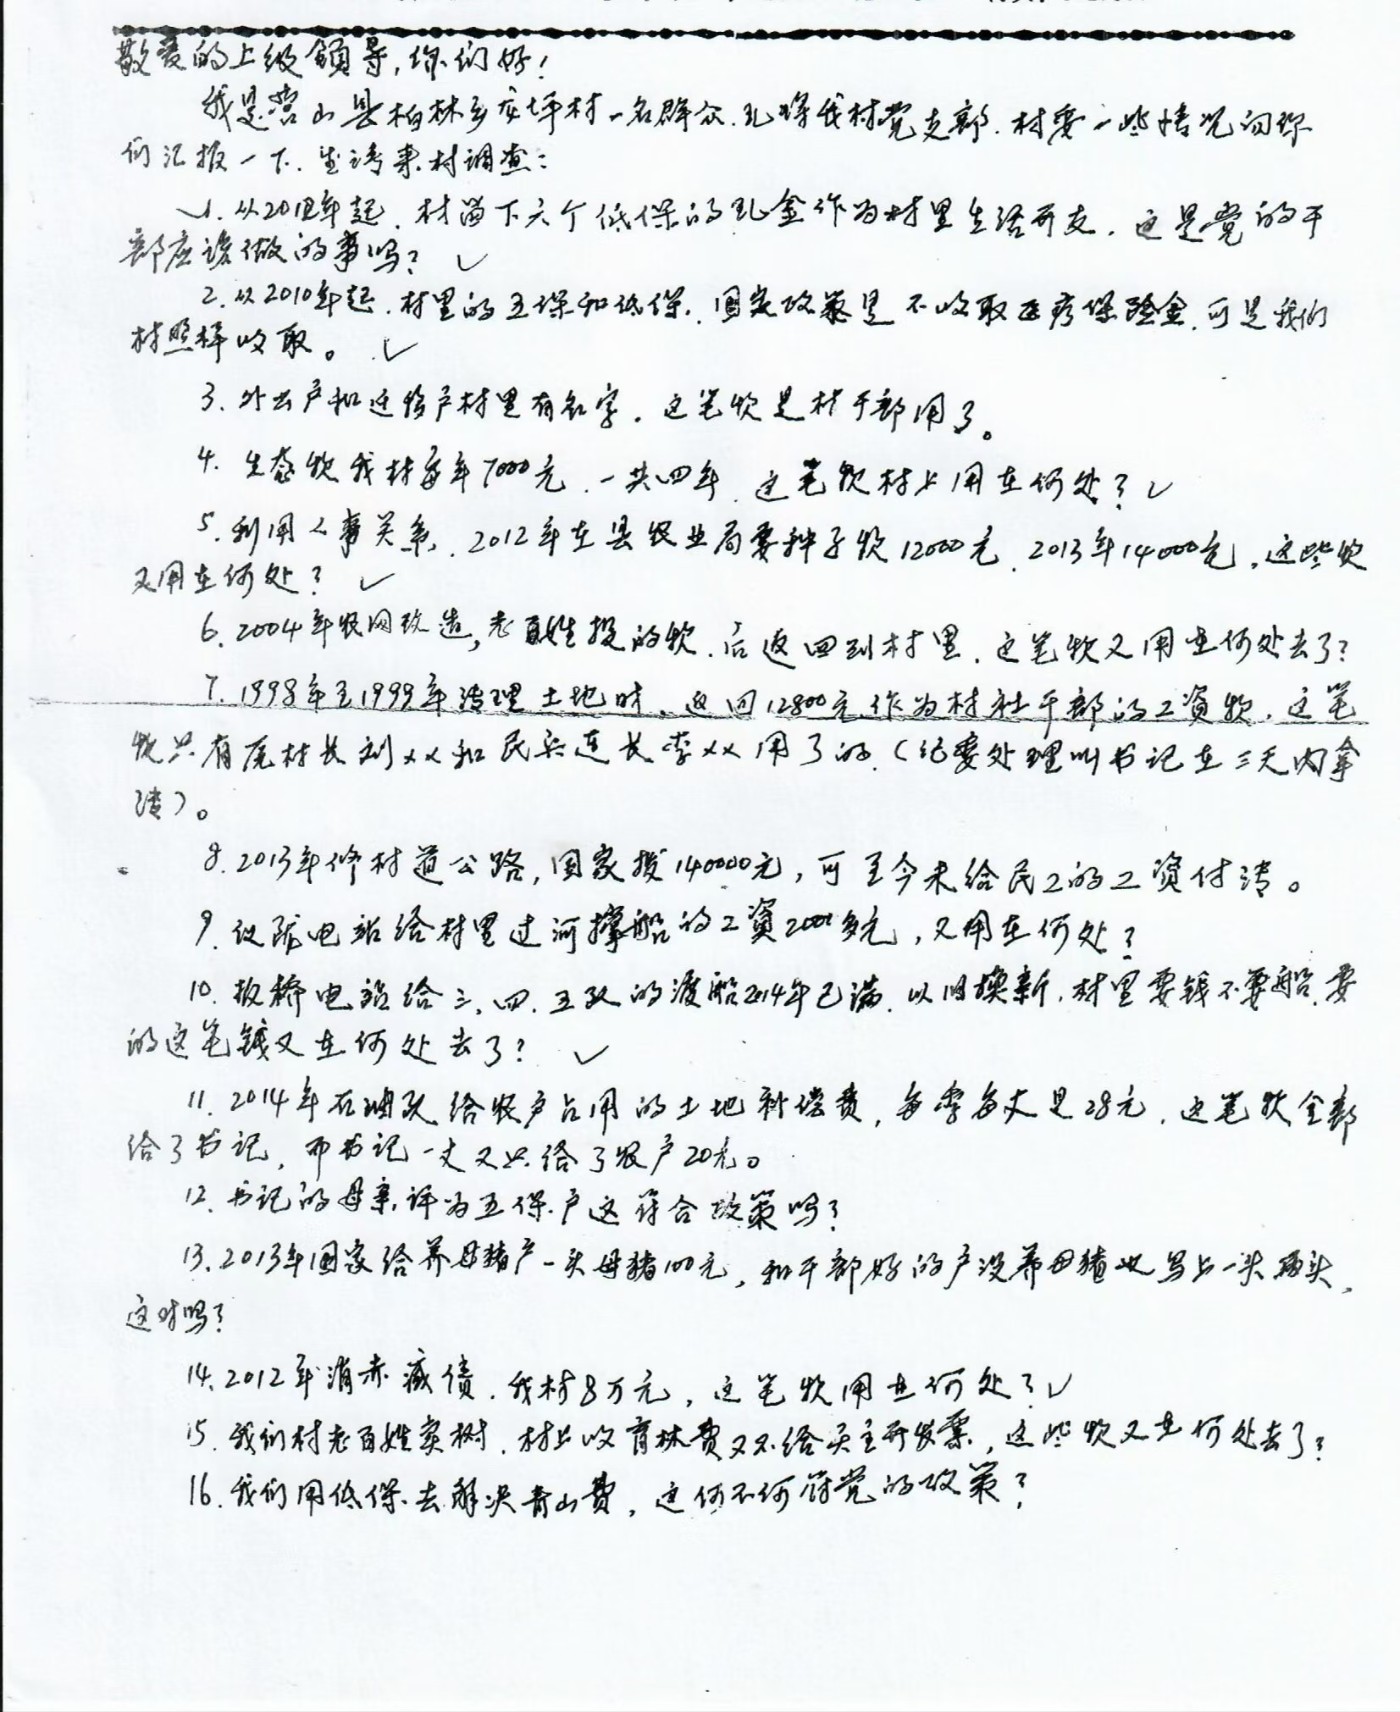 敬爱的上级领导，你们好！
我是营山县柏林乡 坪村一名群众.现将我村党支部.村委一些情况向你
们汇报一下. 请来村调查：
1.从2012年起.村留下六个低保的现金作为村里生活开支.这是党的干
部应该做的事吗？
2.从2010年起.村里的五保和低保.国家政策是不收取医疗保险金.可是我们
村照样收取。
3.外出户和迁给户村里有名字.这笔款是村干部用了。
4.生态款我村每年7000元.一共四年.这笔款村上用在何处？
5.利用人事关系.2012年在县农业局要种子款12000元.2013年14000元.这些款
又用在何处？
6.2004年农网改造,老百姓投的款.后返回到村里.这笔款又用在何处去了？
7.1998年至1999年清理土地时.返回12800元作为村社干部的工资款.这笔
款只有尾村长刘××和民兵连长李××用了的.(纪委处理叫书记在三天内拿
清)。
8.2013年修村道公路,国家拨140000元,可至今未给民工的工资付清。
9.仪陇电站给村里过河撑船的工资2000多元,又用在何处？
10.板桥电站给三.四.五队的渡船2014年已满.以旧换新.村里要钱不要船.要
的这笔钱又在何处去了？
11.2014年石油队给农户占用的土地补偿费,每季每丈是28元.这笔款全部
给了书记,而书记一丈又只给了农户20元。
12.书记的母亲.评为五保户这符合政策吗？
13.2013年国家给养母猪户一头母猪100元,和干部好的户没养母猪也写上一头两头,
这对吗？
14.2012年消赤减债.我村8万元,这笔款用在何处？
15.我们村老百姓卖树.村上收育林费又不给买主开发票,这些款又在何处去了？
16.我们用低保去解决青山费,这何不何符党的政策？